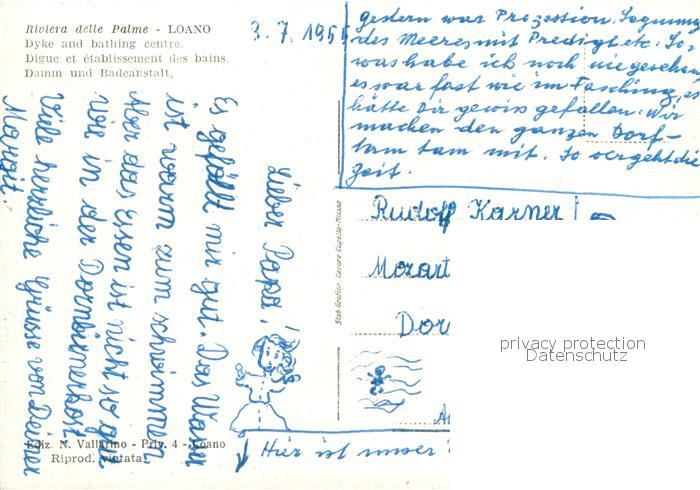 Riviera delle Palme - LOANO
Dyke and bathing centre.
Digue et établissement des bains.
Damm und Badeanstalt.
3. 7. 195
Lieber Papa!
Es gefällt mir gut. Das Wasser
ist warm zum schwimmen.
Aber das Essen ist nicht so gut
wie in der Dornbirnerkost
Viele herzliche Grüsse von Deiner
Margit.
gestern war Prozession. Segnung
des Meeres mit Predigt etc. So
was habe ich noch nie gesehen
es war fast wie im Fasching, es
hätte Dir gewiss gefallen. Wir
machen den ganzen Dorf-
tam tam mit. So vergeht die
Zeit.
Rudolf Karner
Mozart
Dor
Hier ist unser
Stab. Grafico Cesare Capello - Milano
Ediz. N. Vallarino - Priv. 4 - Loano
Riprod. vietata
privacy protection
Datenschutz